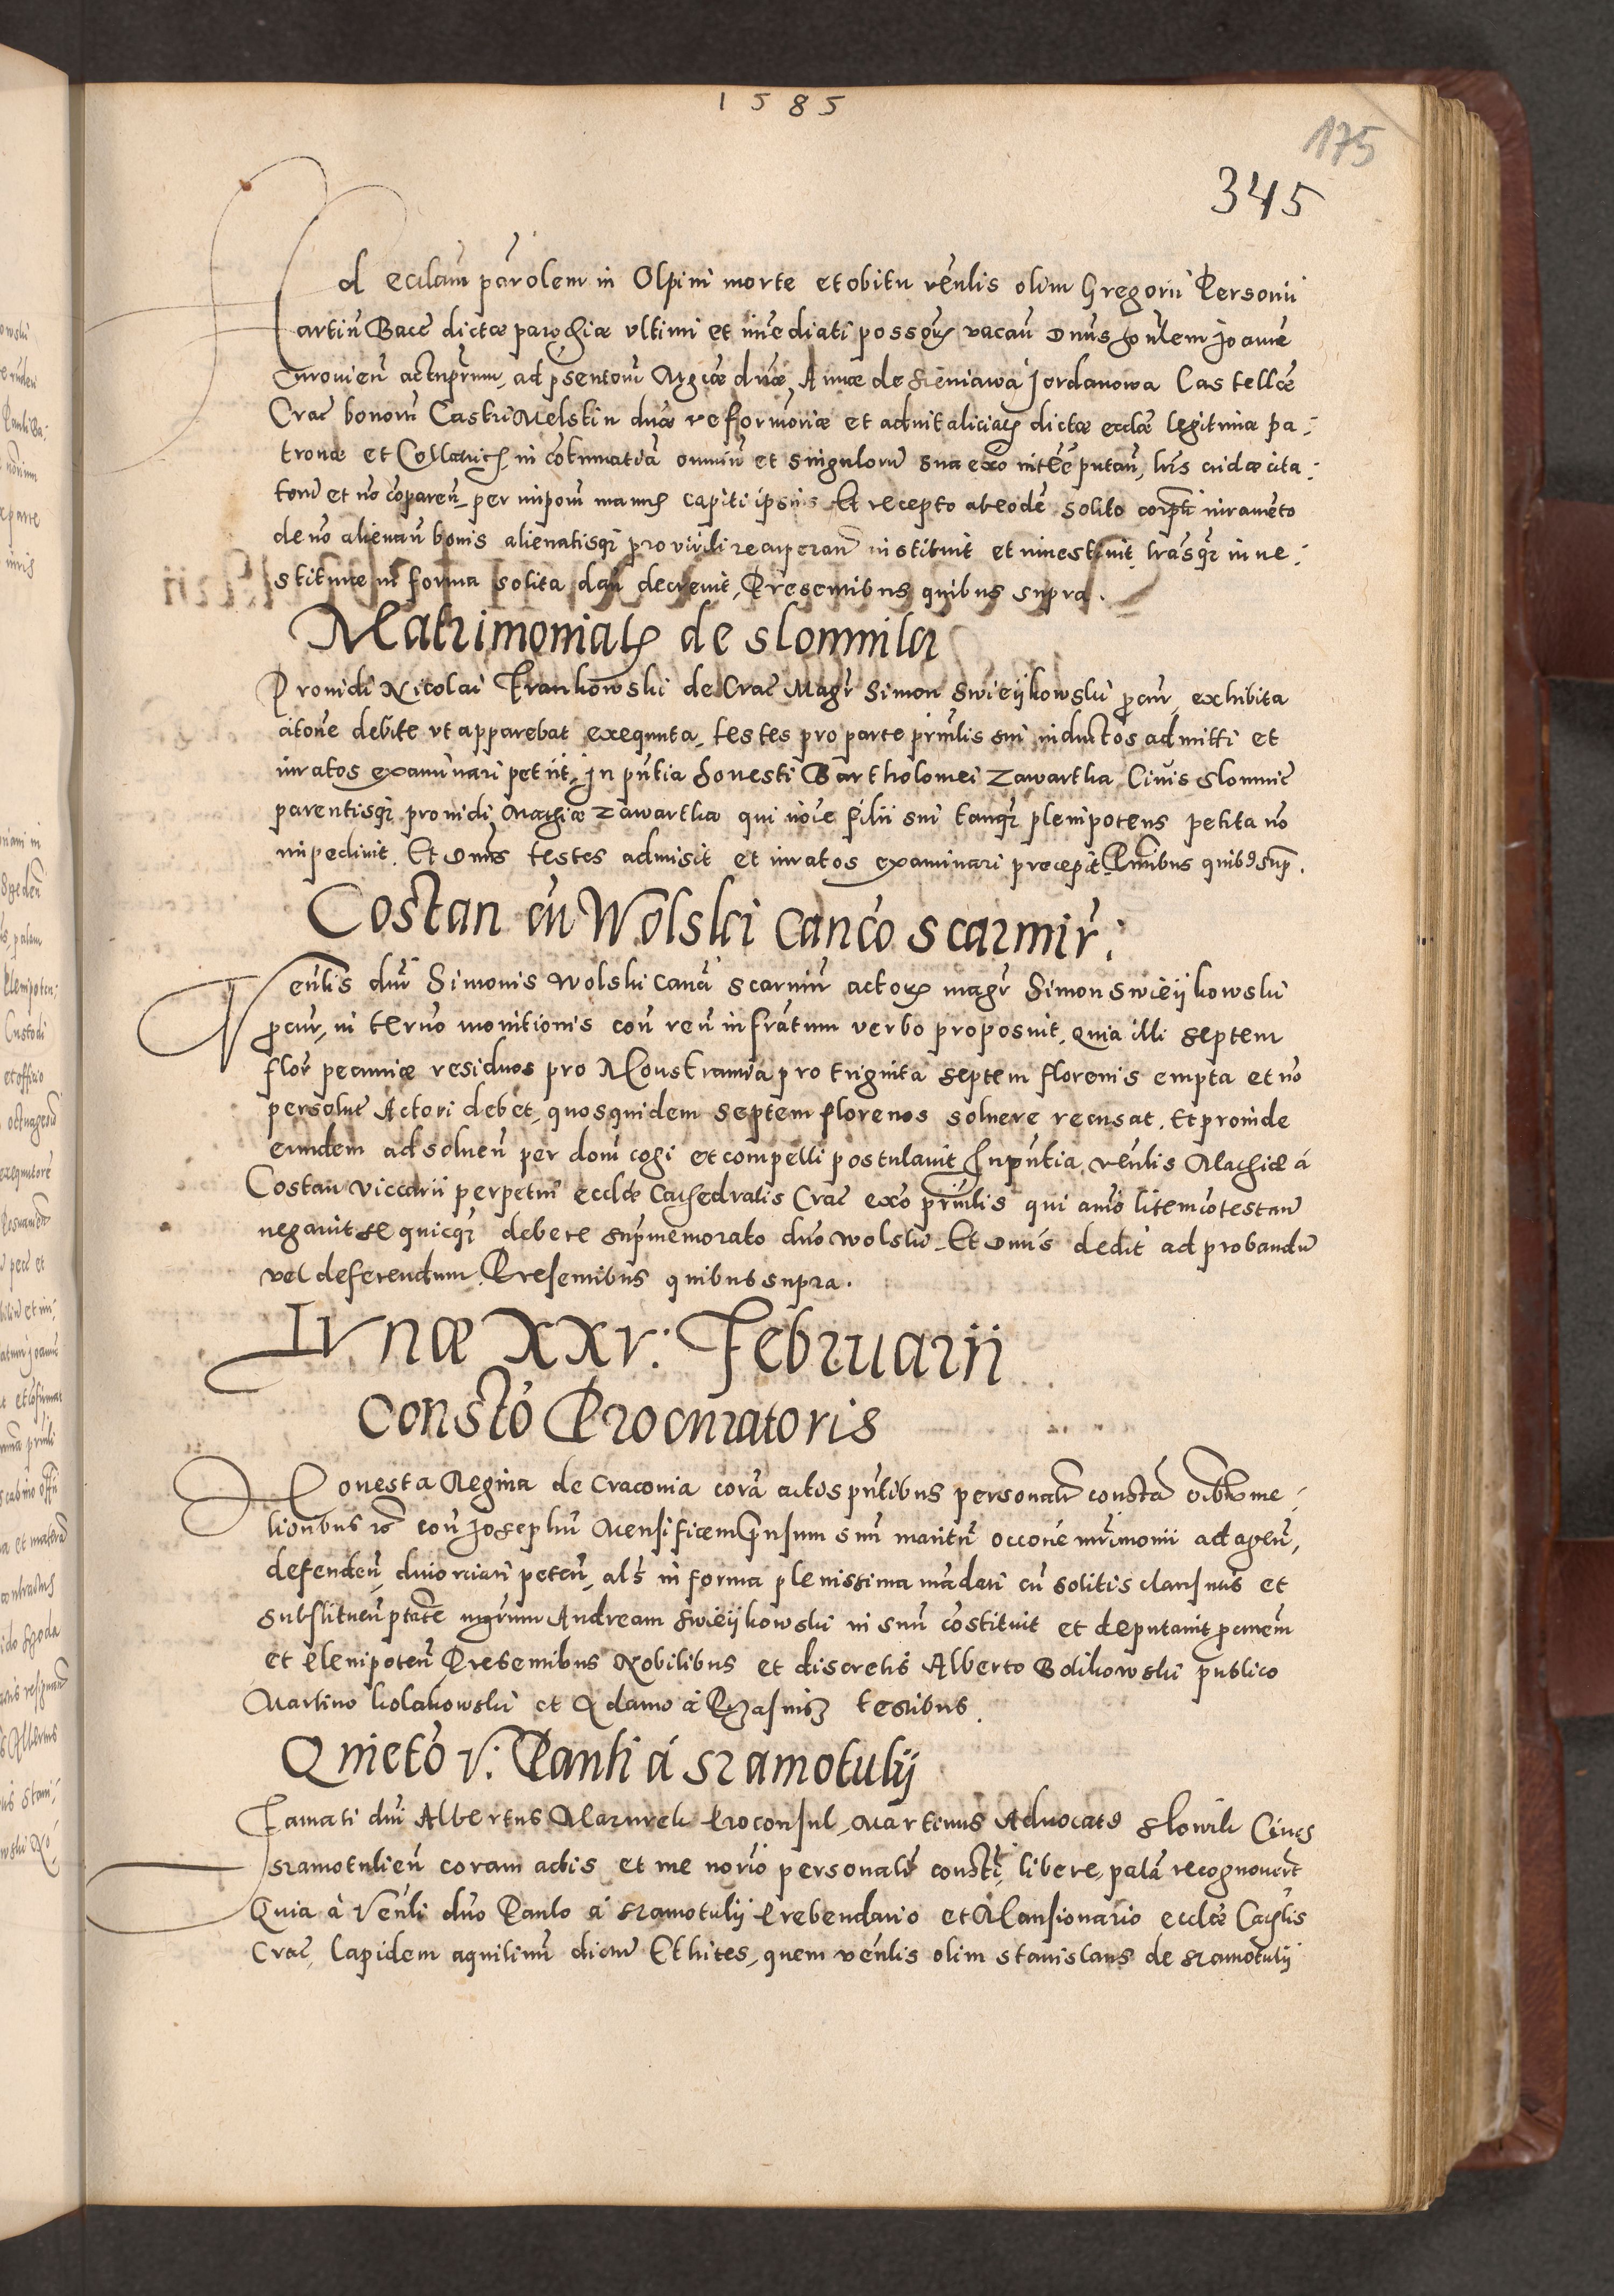 1585
175
345
Ad ecclam parolem in Olpini morte et obitu venlis olim Gregorii Personii
artiu Bacc dictæ parochiæ ultimi et immediati possoris vacan Dnus honlem Joanne
Curovien actu prnm, ad psentom Mgcæ dnæ Annæ de Sieniawa Jordanowa Castellæ
Crac bonoru Castri Melstin dnæ reformoriæ et advitaliciaris dictæ ecclæ legitimæ pa:
tronæ et Collatricis in cotumatia omniu et singuloru sua exo nitee putan, lris cridæ cita:
tom et no coparen per impom manus capiti ipsius Et recepto ab eode solito corpli iurameto
de no alienan bonis alienatisq pro virili recuperan instituit et investivit, lrasq inve:
stituræ in forma solita dari decrevit, Presentibus quibus supra.
Matrimonialis de slomniki
Providi Nicolai Frankowski de Crac Magr Simon Swieijkowski pcur, exhibita
citone debite ut apparebat exequuta, testes pro parte prinlis sui inductos admitti et
iuratos examinari petiit, In pntia honesti Bartholomei Zawartka Civis slomnic
parentisq providi Mathiæ Zawartka qui noie filii sui tanq plenipotens petita no
impedivit. Et Dnus testes admisit et iuratos examinari precepit Pntibus quibus sup.
Costan cu Wolski canco scarmir:
Venlis dni Simonis Wolski canci scarmir actoris magr Simon swieijkowski
pcur, in termo monitionis con reu infratum verbo proposuit, quia illi septem
flor pecuniæ residuos pro Monstrantia pro triginta septem florenis empta et no
persolut Actori debet, quosquidem septem florenos solvere recusat. Et proinde
eundem ad solven per dom cogi et compelli postulavit In pntia venlis Mathiæ á
Costan viccarii perpetui ecclæ Cathedralis Crac exo prinlis qui animo litem cotestan
negavit se quicq debere supmemorato dno wolski. Et Dnus dedit ad probandu
vel deferendum. Presentibus quibus supra.
Lunæ XXV. Februarii
Constó Procuratoris
Honesta Regina de Cracovia cora actis pntibus personalr constta oibus me:
lioribus con Josephu Mensificem Prusum suu maritu occone mrimonii ad agen,
defenden, divorciari peten, als in forma plenissima madati cu solitis clausulis et
substituen ptate mgrum Andream swieijkowski in suu costituit et deputavit pcurem
et plenipoten Presentibus Nobilibus et discretis Alberto Bolikowski publico
Martino kolakowski et Adamo á testibus.
Quietó V. Pauli á sramotulij
Famati dni Albertus Mazurek Proconsul, Martinus Advocatus slowik Cives
sramotulien coram actis et me norio personalr consti, libere, pala recognoverut
Quia á Venli dno Paulo á sramotulij Prebendario et Mansionario ecclæ Cathlis
Crac, lapidem aquilinu dictu Ethites, quem venlis olim Stanislaus de sramotulij